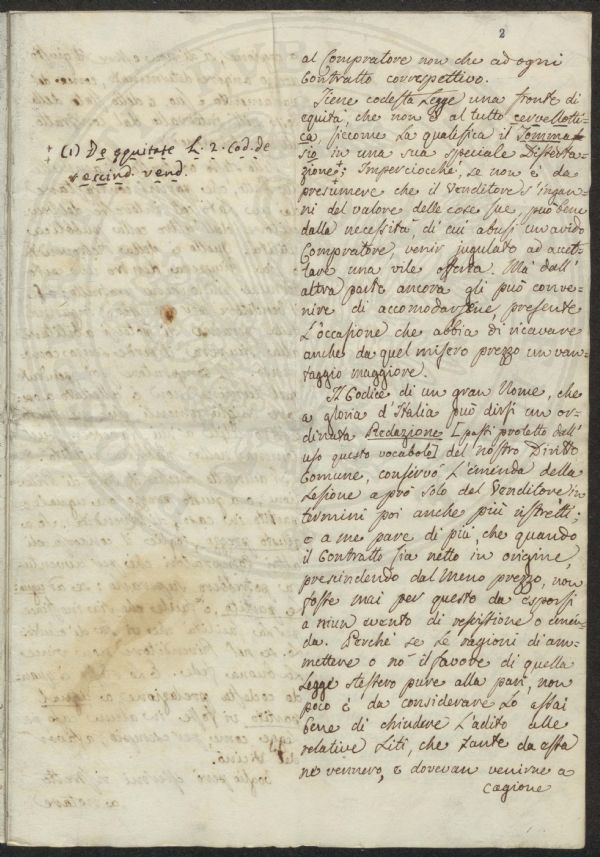 2
al Compratore non che ad ogni
Contratto correspettivo.
Tiene codesta Legge una fronte di
equità, che non è al tutto cervelloti=
ca, siccome la qualifica il Tomma=
sio in una sua speciale Disserta=
zione; Impercioche, se non è da
presumere che il Venditore s'ingan=
ni del valore delle cose sue, può bene
dalla necessità, di cui abusi un avido
Compratore, venir jugulato ad accet=
tare una vile offerta. Mà dall'
altra parte ancora gli può conve=
nire di accomodarsene, presente
L'occasione che abbia di ricavare
anche da quel misero prezzo un van=
taggio maggiore.
Il Codice di un gran Nome, che
a gloria d'Italia può dirsi un or=
dinata Redazione [passi protetto dall'
uso questo vocabolo] del nostro Diritto
Comune, conservò L'emenda della
Lesione a prò solo del Venditore in
termini poi anche più ristretti;
e a me pare di più, che quando
il Contratto sia netto in origine,
prescindendo dal meno prezzo, non
fosse mai per questo da esporsi
a niun evento di rescissione o emen=
da. Perchè se le ragioni di am=
mettere o nò il favore di quella
Legge stessero pure alla pari, non
poco è da considerare Lo assai
bene di chiudere L'adito alle
relative Liti, che tante da essa
ne vennero, e dovevan venirne a
cagione
(1) De equitate L. 2. Cod. de
rescind. vend.